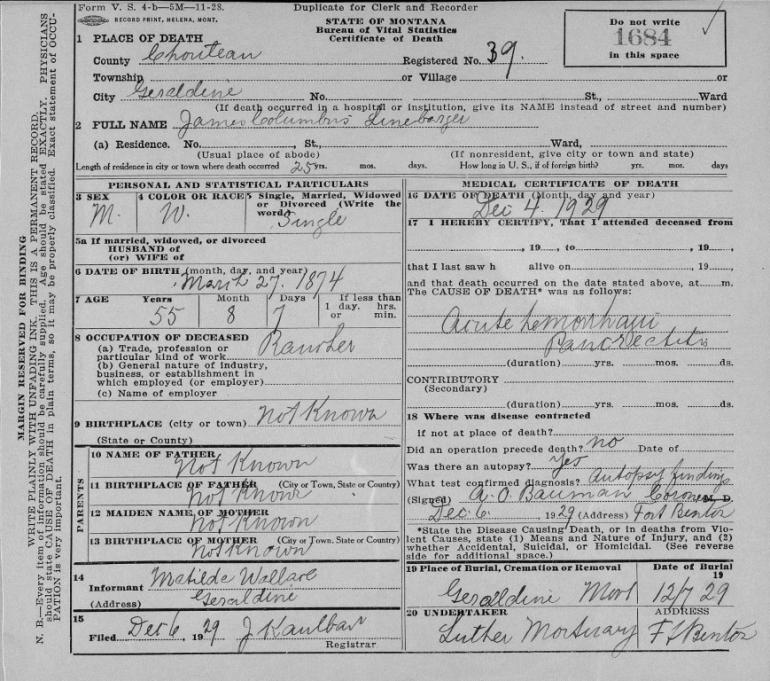 Form V. S. 4-b—5M—11-28.
Duplicate for Clerk and Recorder
RECORD PRINT, HELENA, MONT.
STATE OF MONTANA
Bureau of Vital Statistics
Certificate of Death
Do not write
1684
in this space
1 PLACE OF DEATH
County Chouteau Registered No. 39.
Township or Village or
City Geraldine No. St., Ward
(If death occurred in a hospital or institution, give its NAME instead of street and number)
2 FULL NAME James Columbus Linebarger
(a) Residence. No. , St., Ward,
(Usual place of abode) (If nonresident, give city or town and state)
Length of residence in city or town where death occurred 25 yrs. mos. days. How long in U. S., if of foreign birth? yrs. mos. days.
PERSONAL AND STATISTICAL PARTICULARS
3 SEX
M.
4 COLOR OR RACE
W.
5 Single, Married, Widowed
or Divorced (Write the
word)
Single
5a If married, widowed, or divorced
HUSBAND of
(or) WIFE of
6 DATE OF BIRTH (month, day, and year)
March 27. 1874
7 AGE Years Month Days If less than
1 day, hrs.
or min.
55 8 7
8 OCCUPATION OF DECEASED
(a) Trade, profession or
particular kind of work Rancher
(b) General nature of industry,
business, or establishment in
which employed (or employer)
(c) Name of employer
9 BIRTHPLACE (city or town) Not Known
(State or County)
PARENTS
10 NAME OF FATHER
Not Known
11 BIRTHPLACE OF FATHER (City or Town, State or County)
Not Known
12 MAIDEN NAME OF MOTHER
Not Known
13 BIRTHPLACE OF MOTHER (City or Town, State or County)
Not Known
14
Informant Matilde Wallace
(Address) Geraldine
15
Filed Dec 6, 1929 J Kaulbach
Registrar
MEDICAL CERTIFICATE OF DEATH
16 DATE OF DEATH (Month, day and year)
Dec 4. 1929
17 I HEREBY CERTIFY, That I attended deceased from
, 19 , to , 19 ,
that I last saw h alive on , 19 ,
and that death occurred on the date stated above, at m.
The CAUSE OF DEATH* was as follows:
Acute hemorrhagic
Pancreatitis
(duration) yrs. mos. ds.
CONTRIBUTORY
(Secondary)
(duration) yrs. mos. ds.
18 Where was disease contracted
if not at place of death?
Did an operation precede death? no Date of
Was there an autopsy? Yes
What test confirmed diagnosis? Autopsy findings
(Signed) A. O. Bauman Coroner M. D.
Dec 6. 1929 (Address) Fort Benton
*State the Disease Causing Death, or in deaths from Vio-
lent Causes, state (1) Means and Nature of Injury, and (2)
whether Accidental, Suicidal, or Homicidal. (See reverse
side for additional space.)
19 Place of Burial, Cremation or Removal Date of Burial
19
Geraldine Mont 12/7 29
20 UNDERTAKER ADDRESS
Luther Mortuary Ft Benton
MARGIN RESERVED FOR BINDING
WRITE PLAINLY, WITH UNFADING INK. THIS IS A PERMANENT RECORD.
N. B.—Every item of information should be carefully supplied. Age should be stated EXACTLY. PHYSICIANS
should state CAUSE OF DEATH in plain terms, so it may be properly classified. Exact statement of OCCU-
PATION is very important.